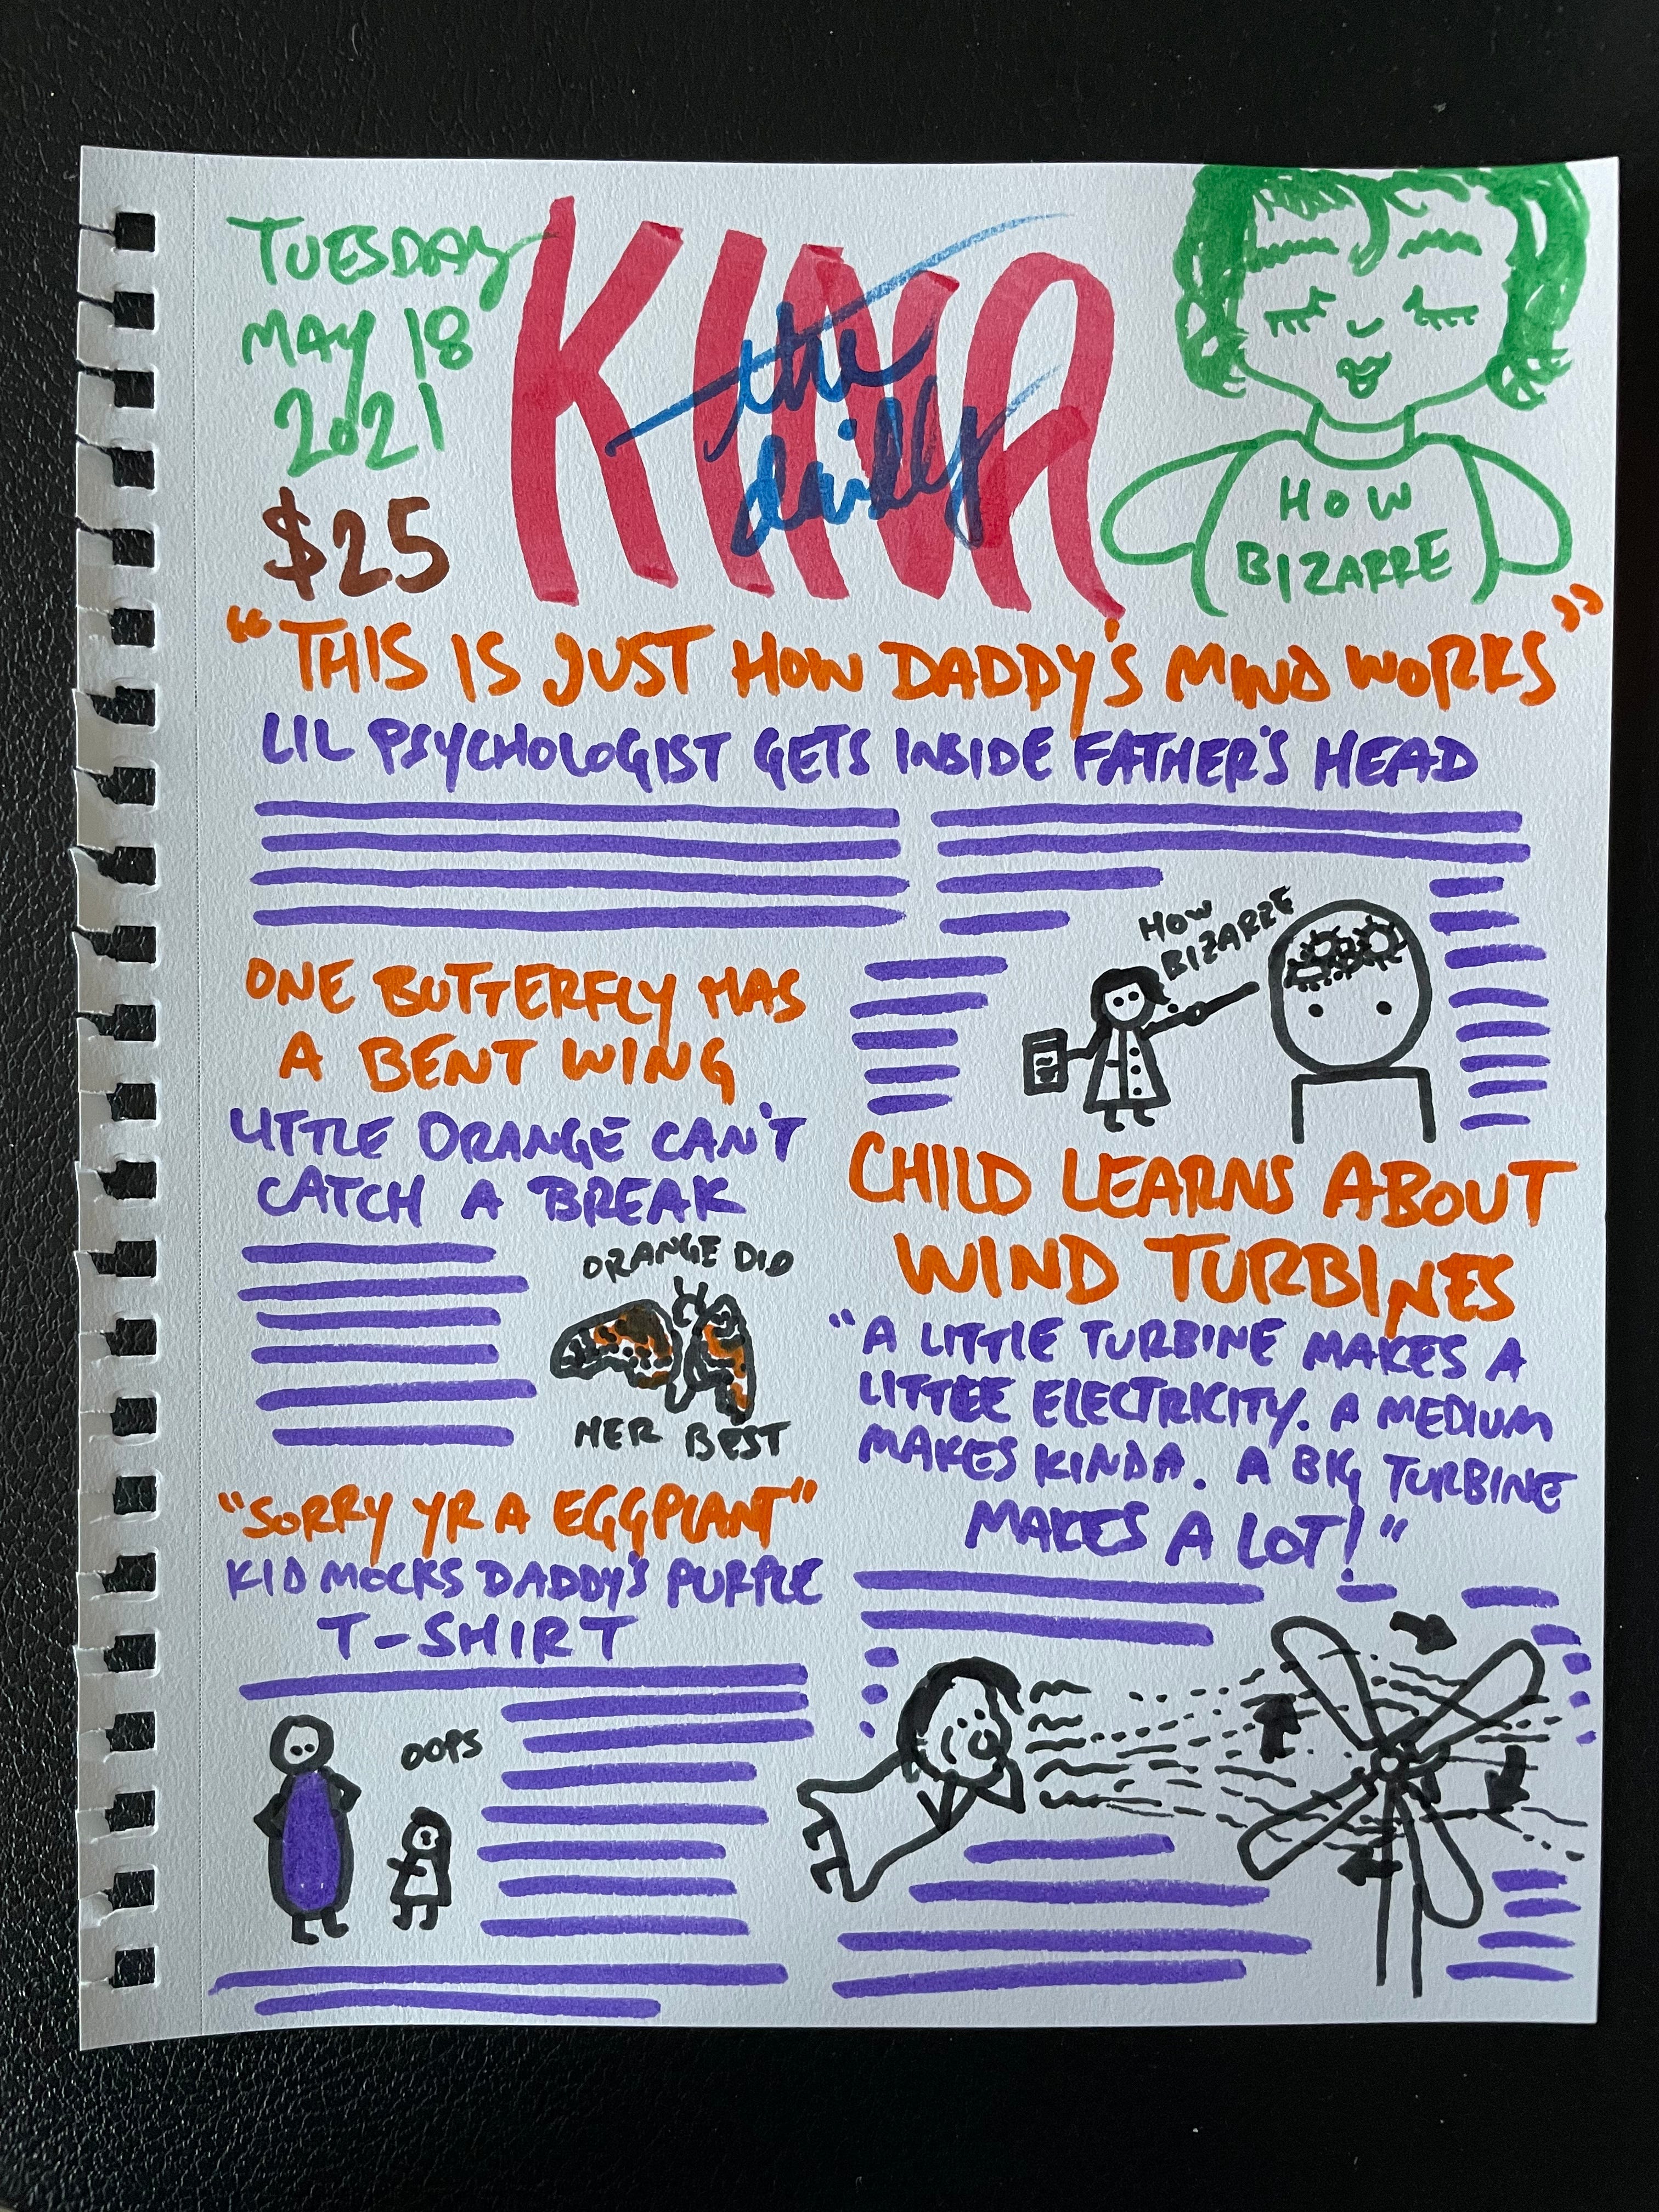 TUESDAY
MAY 18
2021
$25
the
daily
KINA
HOW
BIZARRE
"THIS IS JUST HOW DADDY'S MIND WORKS"
LIL PSYCHOLOGIST GETS INSIDE FATHER'S HEAD
HOW
BIZARRE
ONE BUTTERFLY HAS
A BENT WING
LITTLE ORANGE CAN'T
CATCH A BREAK
ORANGE DID
HER BEST
"SORRY YR A EGGPLANT"
KID MOCKS DADDY'S PURPLE
T-SHIRT
OOPS
CHILD LEARNS ABOUT
WIND TURBINES
"A LITTLE TURBINE MAKES A
LITTLE ELECTRICITY. A MEDIUM
MAKES KINDA. A BIG TURBINE
MAKES A LOT!"